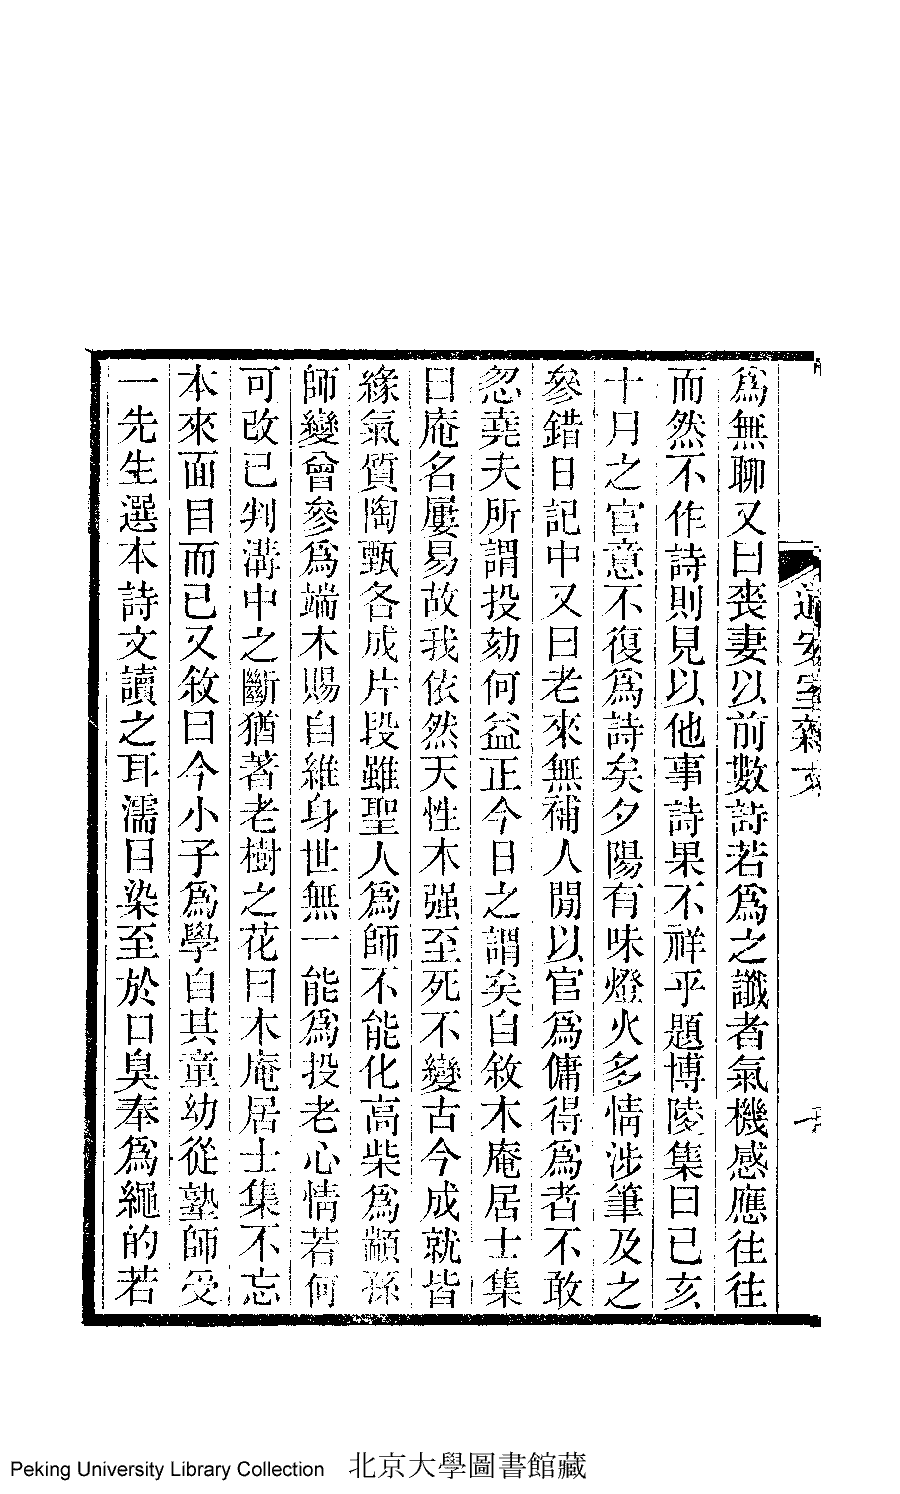 爲無聊又曰喪妻以前數詩若爲之讖者氣機感應往往
而然不作詩則見以他事詩果不祥乎題博陵集曰己亥
十月之官意不復爲詩矣夕陽有味燈火多情涉筆及之
參錯日記中又曰老來無補人閒以官爲傭得爲者不敢
忽堯夫所謂投劾何益正今日之謂矣自敘木庵居士集
曰庵名屢易故我依然天性木强至死不變古今成就皆
緣氣質陶甄各成片段雖聖人爲師不能化高柴爲顓孫
師變曾參爲端木賜自維身世無一能爲投老心情若何
可改已判溝中之斷猶著老樹之花曰木庵居士集不忘
本來面目而已又敘曰今小子爲學自其童幼從塾師受
一先生選本詩文讀之耳濡目染至於口臭奉爲繩的若
安室
Peking University Library Collection 北京大學圖書館藏